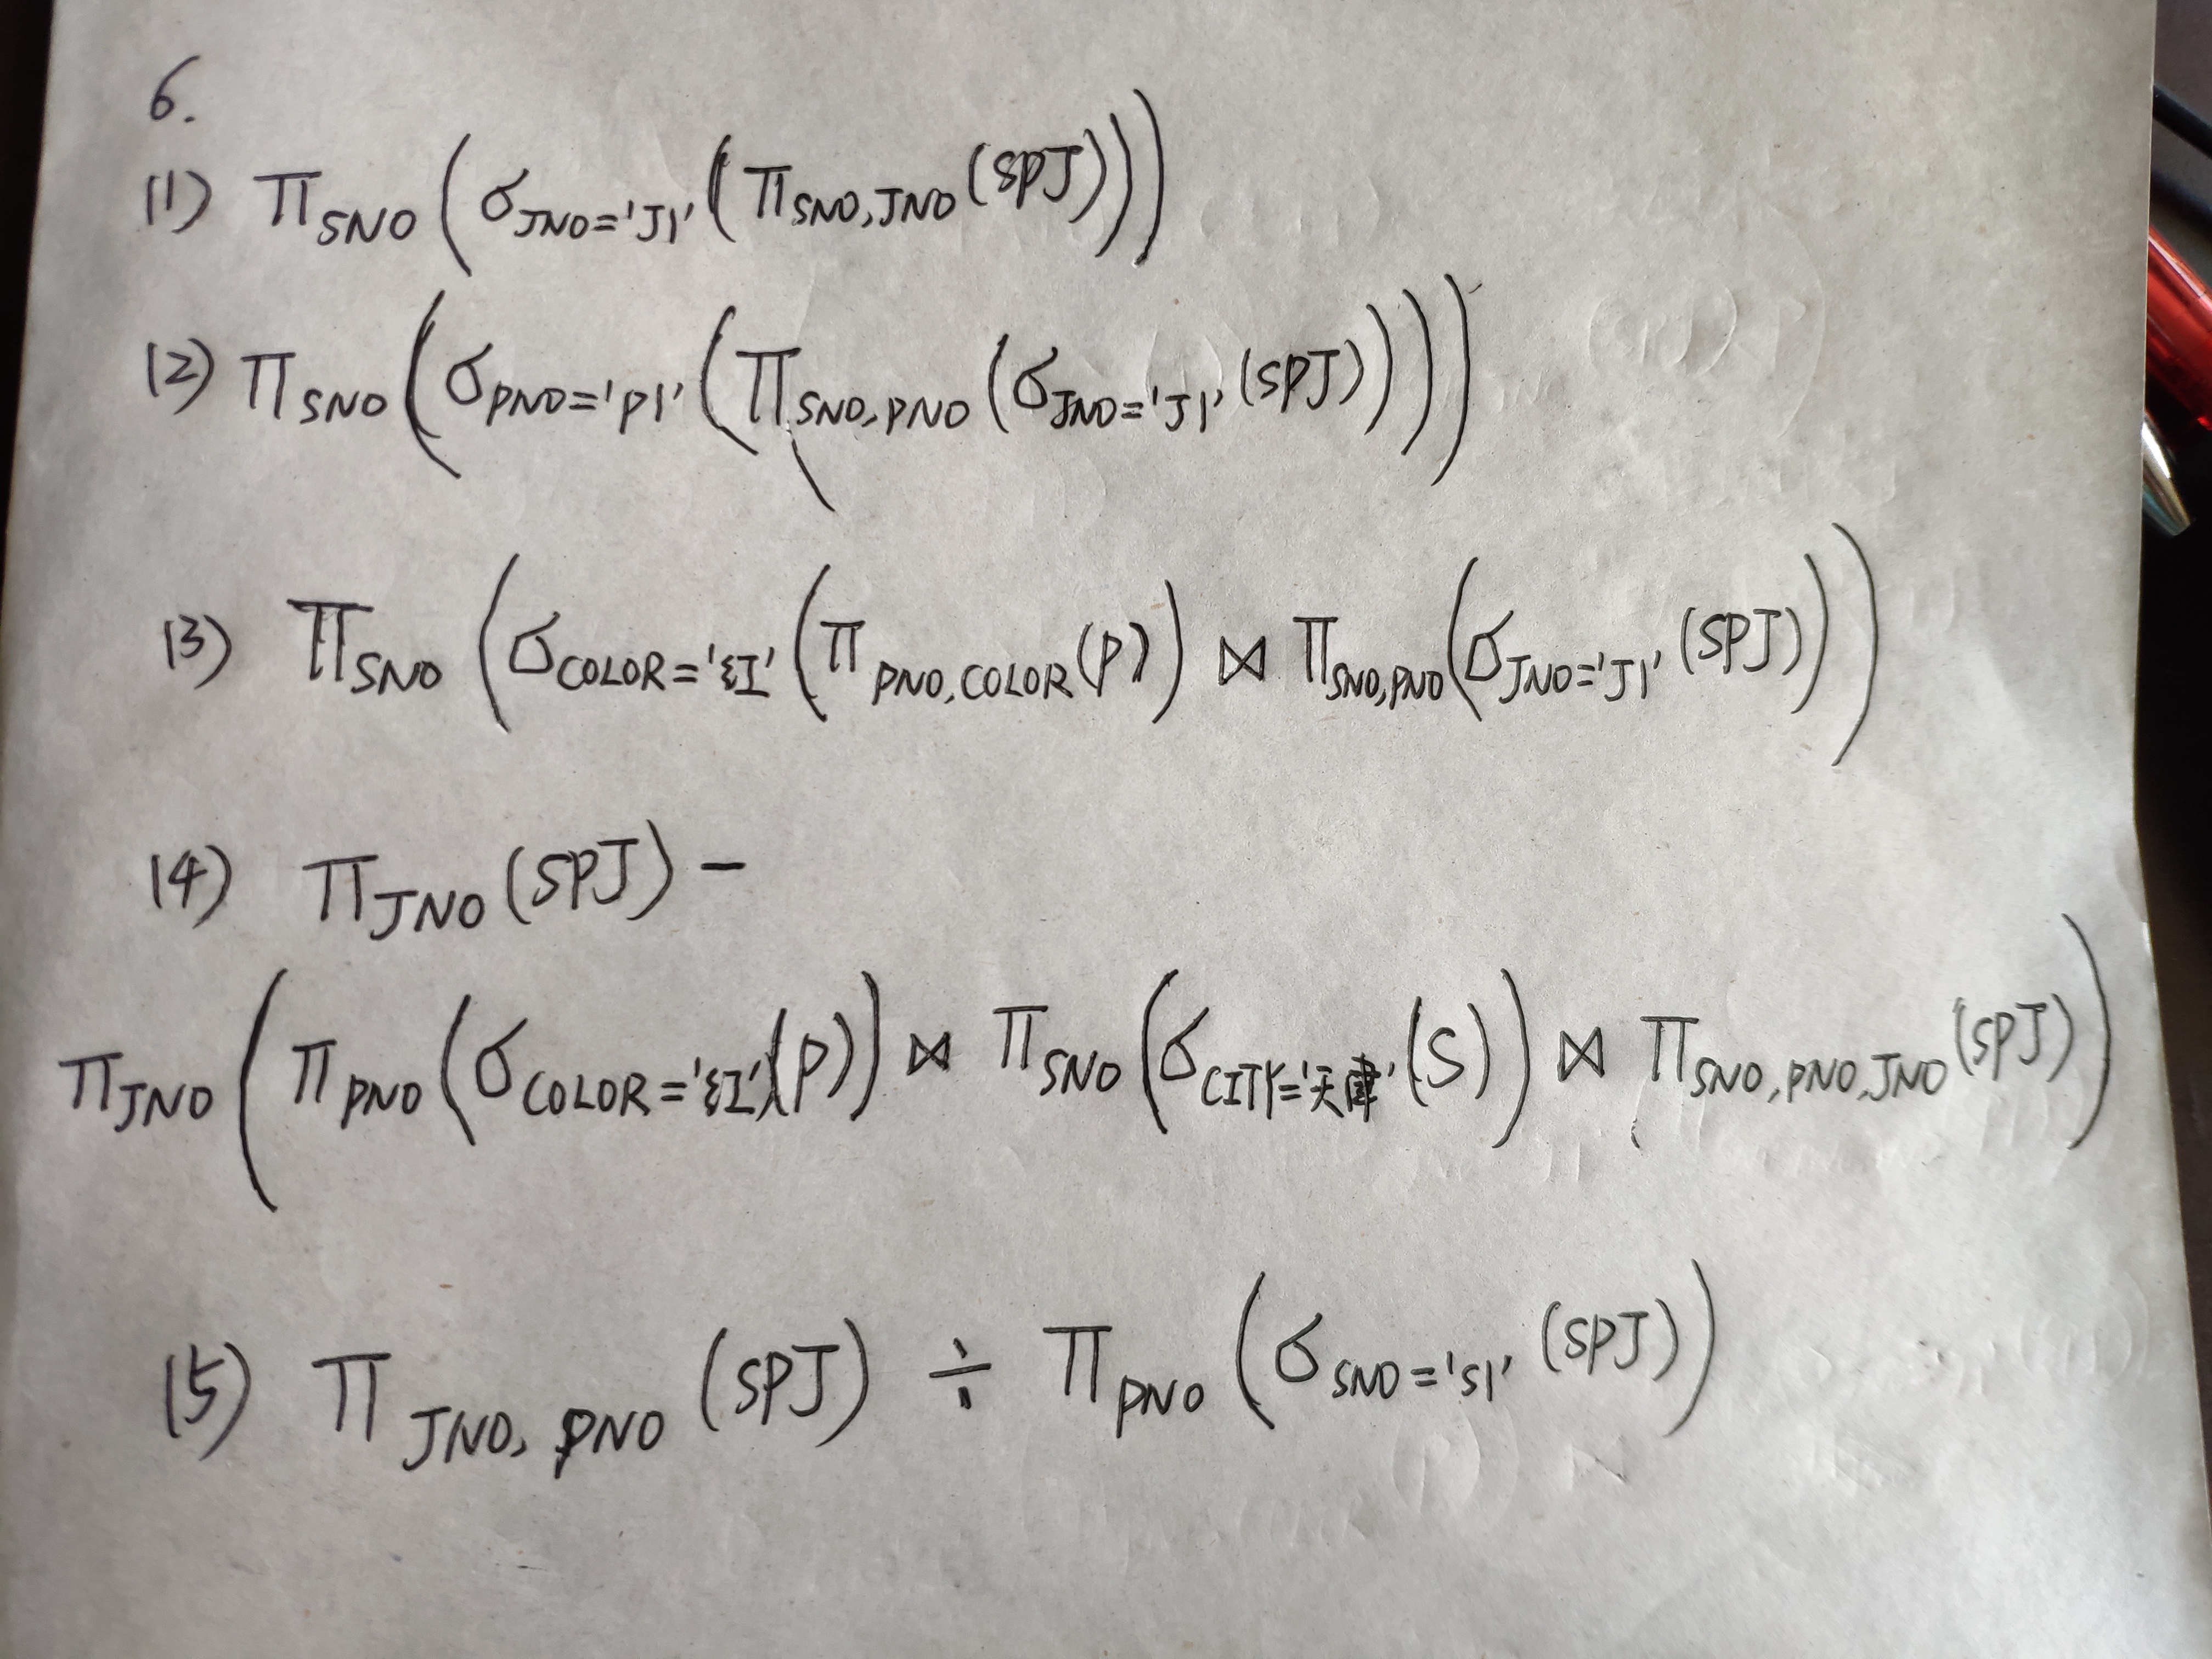 6.
(1) Π SNO (σ JNO='J1' (Π SNO,JNO (SPJ)))
(2) Π SNO (σ PNO='P1' (Π SNO,PNO (σ JNO='J1' (SPJ))))
(3) Π SNO (σ COLOR='红' (Π PNO,COLOR (P)) ⋈ Π SNO,PNO (σ JNO='J1' (SPJ)))
(4) Π JNO (SPJ) −
Π JNO (Π PNO (σ COLOR='红' (P)) ⋈ Π SNO (σ CITY='天津' (S)) ⋈ Π SNO,PNO,JNO (SPJ))
(5) Π JNO, PNO (SPJ) ÷ Π PNO (σ SNO='S1' (SPJ))